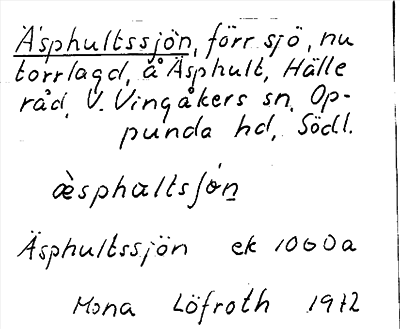 Äsphultssjön, förr sjö, nu
torrlagd, å Äsphult, Hälle
råd, V. Vingåkers sn, Op-
punda hd, Södl.
æ̀sphaltsʃón̲
Äsphultssjön ek 1000a
Mona Löfroth 1972